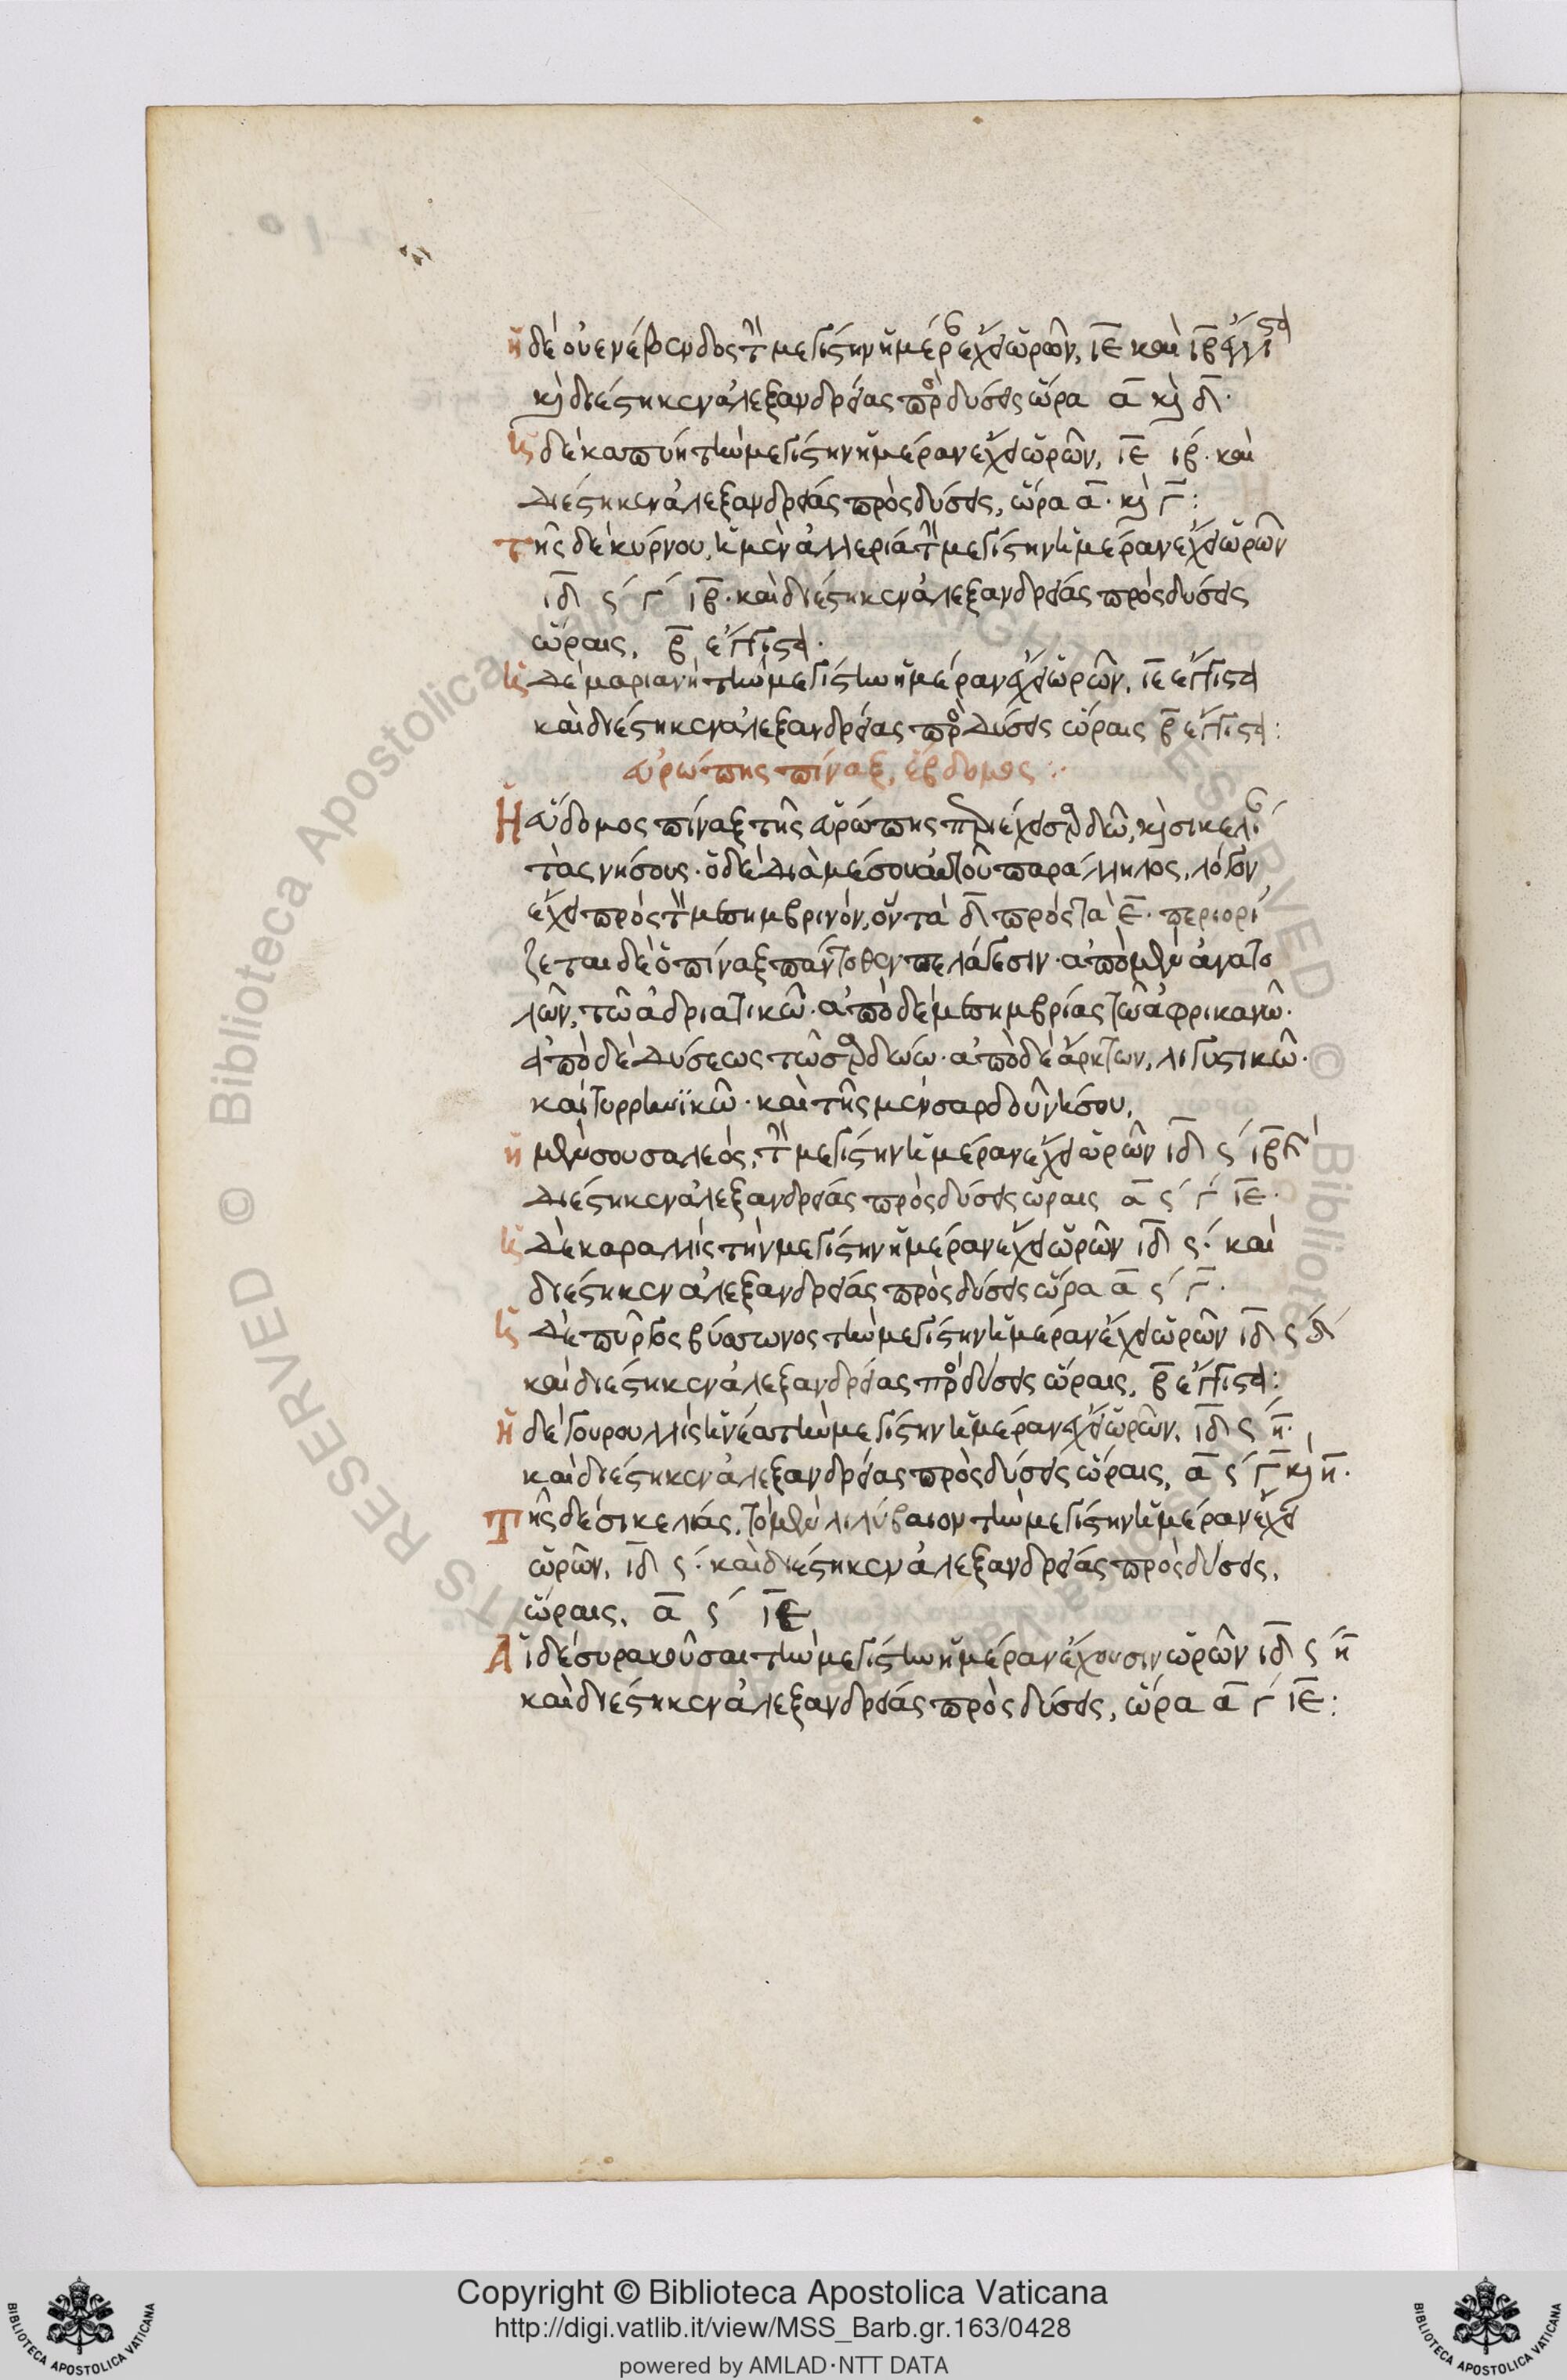 ἡ δὲ οὐενέβενδος τὴν μεγίστην ἡμέραν ἔχει ὡρῶν, ιε καὶ ιβ ἔγγιστα
καὶ διέστηκεν ἀλεξανδρείας πρὸς δύσεις ὥρα α καὶ δ.
ἡ δὲ καπύη τὴν μεγίστην ἡμέραν ἔχει ὡρῶν, ιε ιβ. καὶ
διέστηκεν ἀλεξανδρείας πρὸς δύσεις, ὥρα α. καὶ γ:
τῆς δὲ κύρνου, ἡ μὲν ἀλλερία τὴν μεγίστην ἡμέραν ἔχει ὡρῶν
ιδ ϛ γ ιβ. καὶ διέστηκεν ἀλεξανδρείας πρὸς δύσεις
ὥραις, β ἔγγιστα.
ἡ δὲ μαριανὴ τὴν μεγίστην ἡμέραν ἔχει ὡρῶν, ιε ἔγγιστα
καὶ διέστηκεν ἀλεξανδρείας πρὸς δύσεις ὥραις β ἔγγιστα:
εὐρώπης πίναξ, ἕβδομος:.
Ἡ ἕβδομος πίναξ τῆς εὐρώπης περιέχει σαρδὼ, καὶ σικελίαν
τὰς νήσους. ὁ δὲ διὰ μέσου αὐτοῦ παράλληλος, λόγον
ἔχει πρὸς τὸν μεσημβρινόν, ὃν τὰ δ πρὸς τὰ ε. περιορί
ζεται δὲ ὁ πίναξ πάντοθεν πελάγεσιν. ἀπὸ μὲν ἀνατο
λῶν, τῶ ἀδριατικῶ. ἀπὸ δὲ μεσημβρίας τῶ ἀφρικανῶ.
ἀπὸ δὲ δύσεως τῶ σαρδώω. ἀπὸ δὲ ἄρκτων, λιγυστικῶ.
καὶ τυρρηνϊκῶ. καὶ τῆς μὲν σαρδοῦ νήσου,
ἡ μὲν σουσαλεὸς, τὴν μεγίστην ἡμέραν ἔχει ὡρῶν ιδ ϛ ιβ καὶ
διέστηκεν ἀλεξανδρείας πρὸς δύσεις ὥραις α ϛ γ ιε.
ἡ δὲ καραλλὶς τὴν μεγίστην ἡμέραν ἔχει ὡρῶν ιδ ϛ. καὶ
διέστηκεν ἀλεξανδρείας πρὸς δύσεις ὥρα α ϛ γ.
ἡ δὲ πύργος βύσωνος τὴν μεγίστην ἡμέραν ἔχει ὡρῶν ιδ ϛ δ
καὶ διέστηκεν ἀλεξανδρείας πρὸς δύσεις ὥραις, β ἔγγιστα:
ἡ δὲ γουρουλλὶς ἡ νέα τὴν μεγίστην ἡμέραν ἔχει ὡρῶν, ιδ ϛ η.
καὶ διέστηκεν ἀλεξανδρείας πρὸς δύσεις ὥραις, α ϛ γ καὶ η.
Τῆς δὲ σικελίας, τὸ μὲν λιλύβαιον τὴν μεγίστην ἡμέραν ἔχει
ὡρῶν, ιδ ϛ. καὶ διέστηκεν ἀλεξανδρείας πρὸς δύσεις,
ὥραις, α ϛ ιε
Αἱ δὲ συρακοῦσαι τὴν μεγίστην ἡμέραν ἔχουσιν ὡρῶν ιδ ϛ η
καὶ διέστηκεν ἀλεξανδρείας πρὸς δύσεις, ὥρα α γ ιε:
Biblioteca Apostolica Vaticana
© Biblioteca Apostolica Vaticana
RIGHTS RESERVED
Copyright © Biblioteca Apostolica Vaticana
http://digi.vatlib.it/view/MSS_Barb.gr.163/0428
powered by AMLAD·NTT DATA
BIBLIOTECA APOSTOLICA VATICANA
BIBLIOTECA APOSTOLICA VATICANA